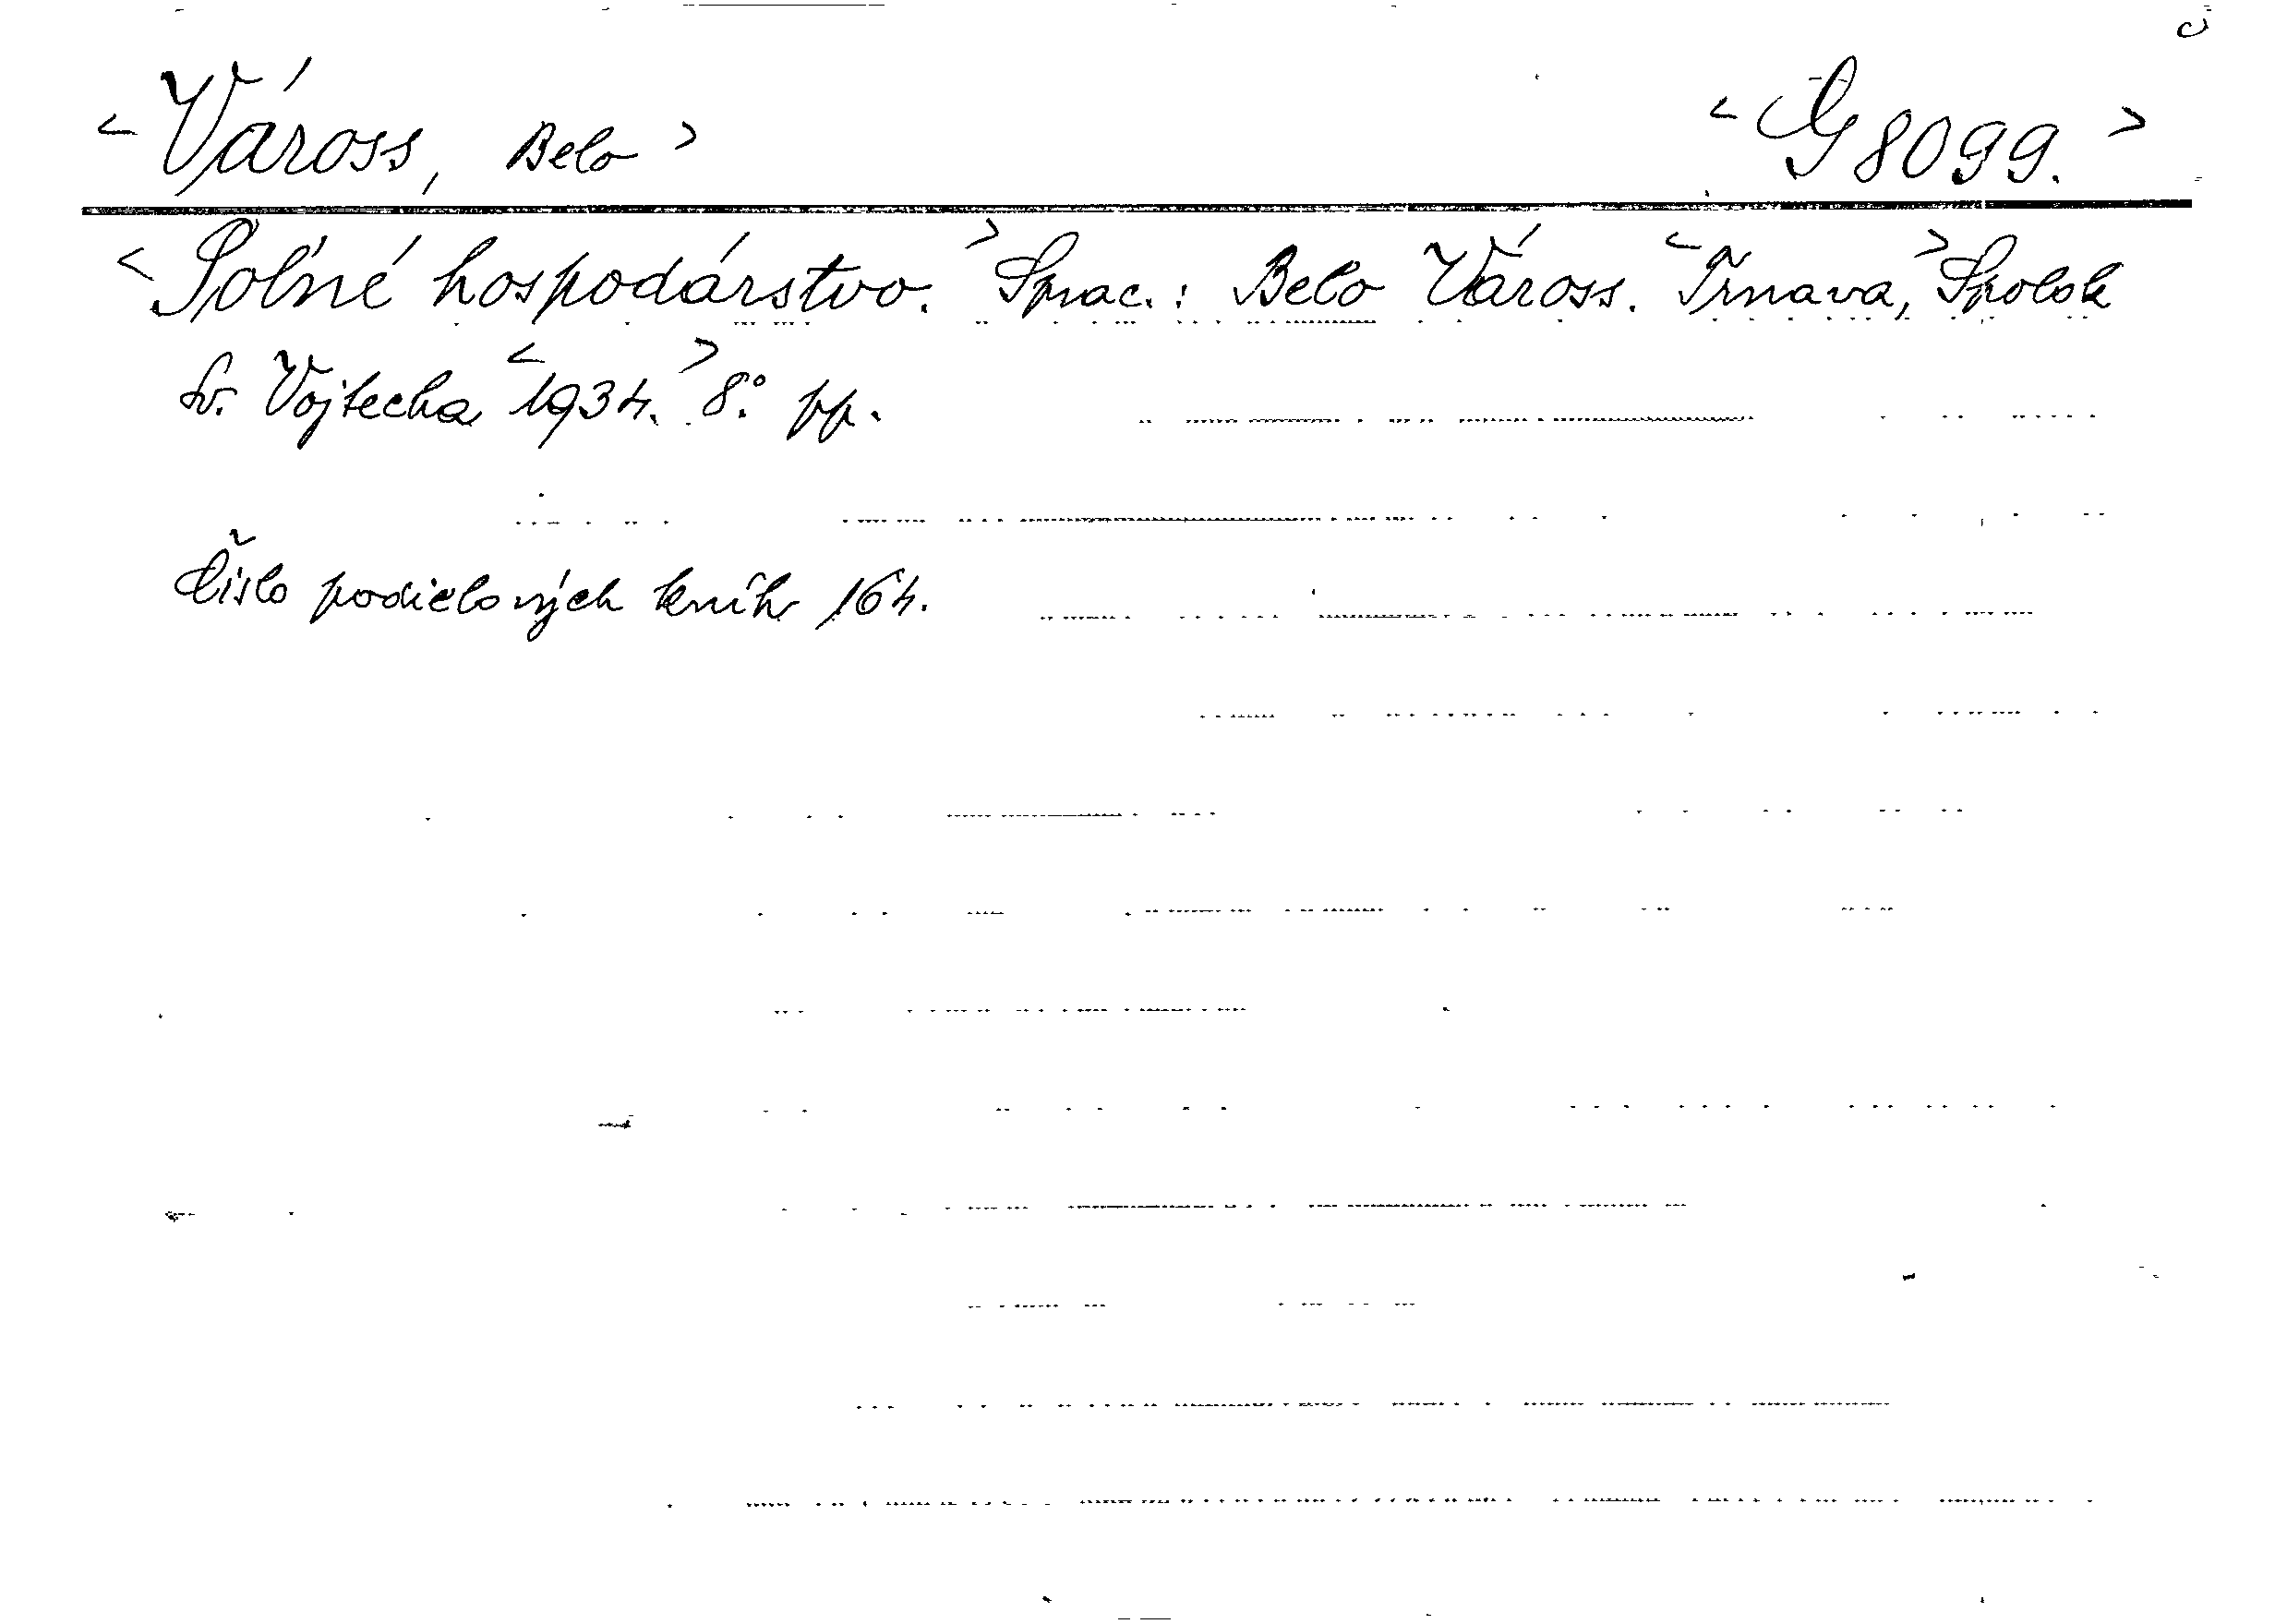 < Váross, Belo > < G 8099. >
< Poľné hospodárstvo. > Sprac.: Belo Váross. < Trnava, > Spolok
sv. Vojtecha < 1934. > 8.° pp.
Číslo podielových kníh 164.